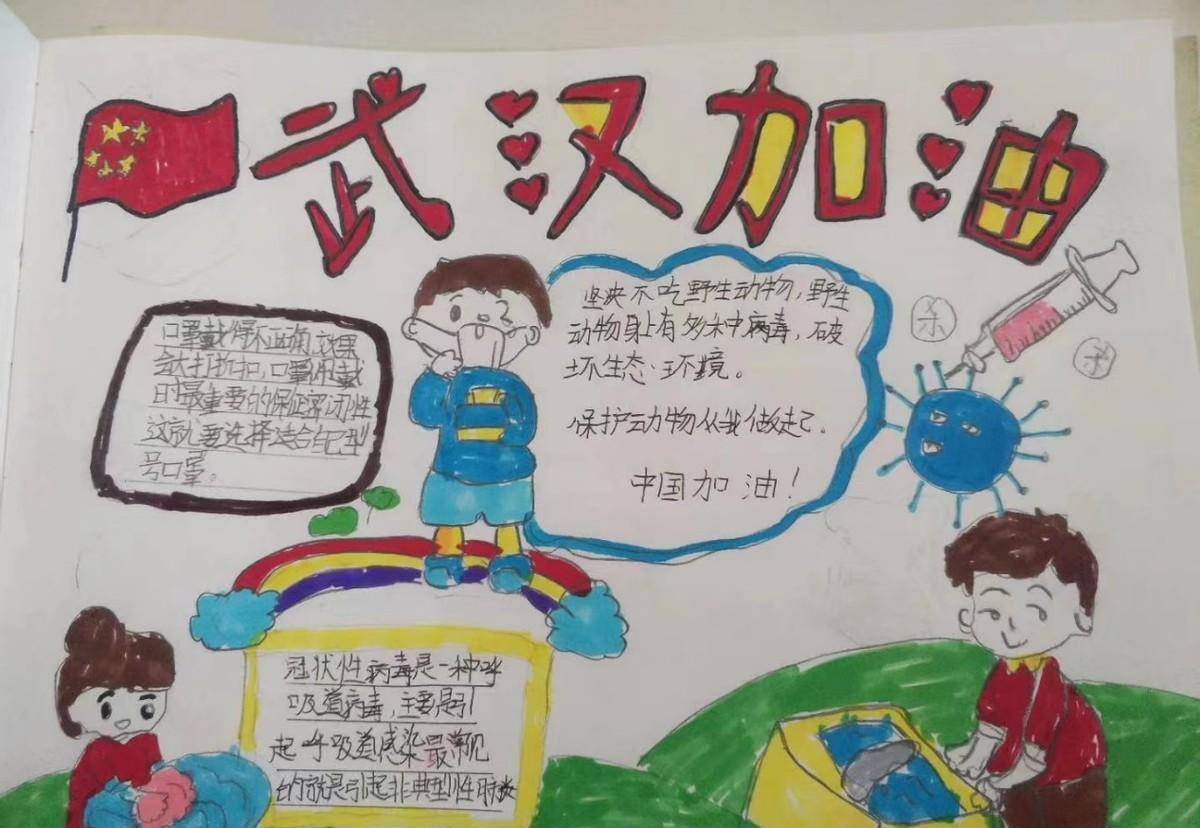 武汉加油
口罩戴得不正确,效果
会大打折扣,口罩佩戴
时最重要的保证密闭性
这就要选择适合纪型
号口罩。
坚决不吃野生动物,野生
动物身上有多种病毒,破
坏生态环境。
保护动物从我做起。
中国加油!
杀
冠状性病毒是一种呼
吸道病毒,主要是引
起呼吸道感染最常见
的就是引起非典型性肺炎